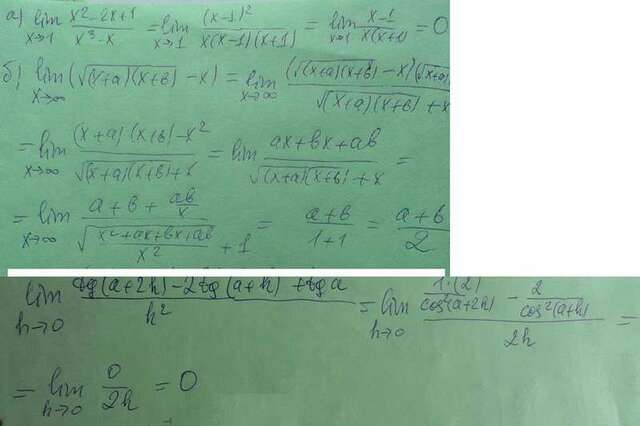 а) lim x→1 x²-2x+1 / x³-x = lim x→1 (x-1)² / x(x-1)(x+1) = lim x→1 x-1 / x(x+1) = 0
б) lim x→∞ (√(x+a)(x+в) - x) = lim x→∞ (√(x+a)(x+в) - x)(√(x+a) / √(x+a)(x+в) + x
= lim x→∞ (x+a)(x+в)-x² / √(x+a)(x+в)+x = lim ax+вx+aв / √(x+a)(x+в) + x =
= lim x→∞ a+в+ aв/x / √ x²+ax+вx+aв / x² + 1 = a+в / 1+1 = a+в / 2
lim h→0 tg(a+2h)-2tg(a+h)+tga / h² = lim h→0 1·(2) / cos²(a+2h) - 2 / cos²(a+h) / 2h =
= lim h→0 0 / 2h = 0